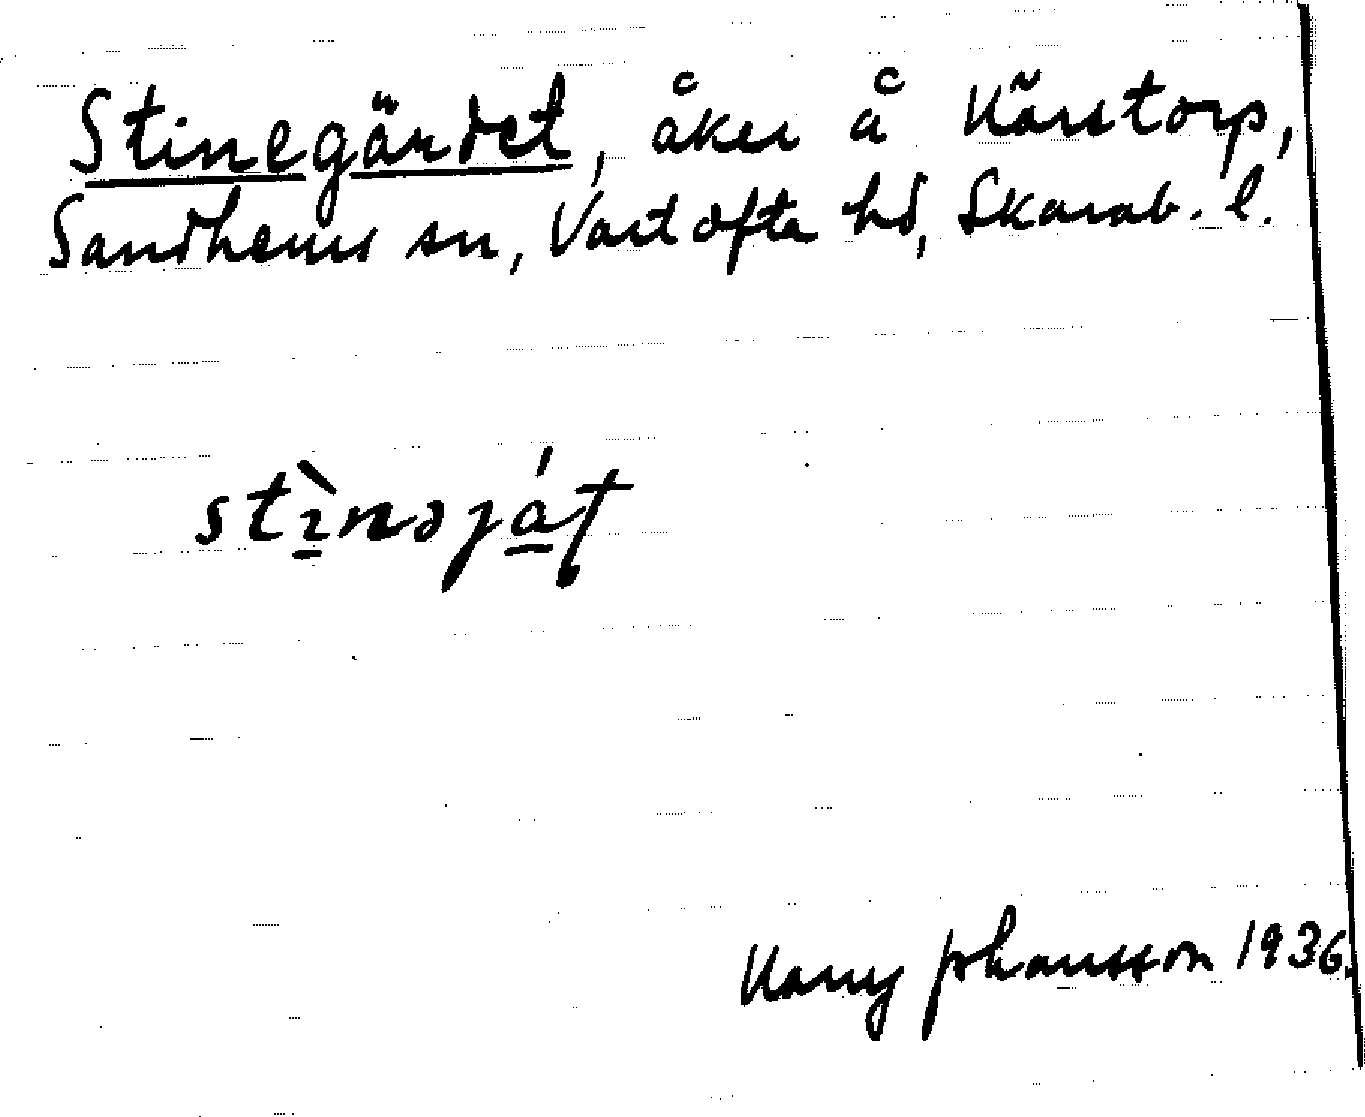 Stinegärdet, åker å Kärstorp,
Sandhems sn, Vartofta hd, Skarab. l.
Harry Johansson 1936.